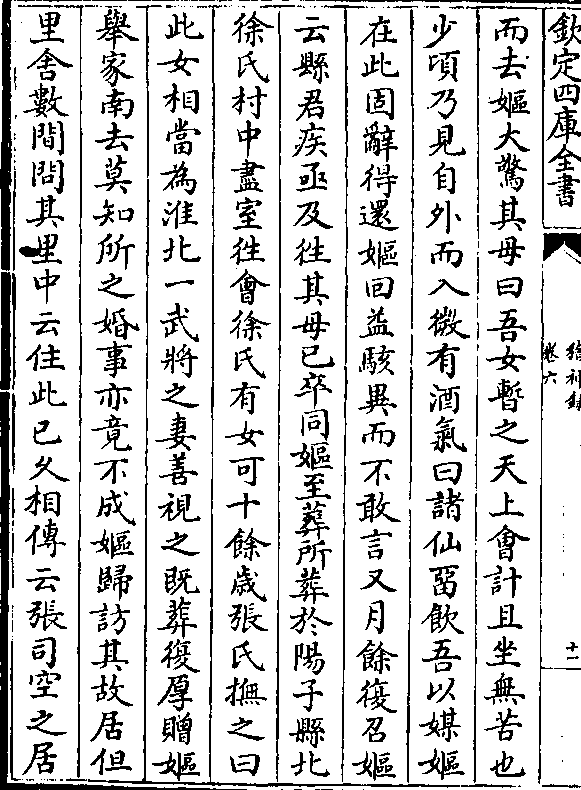 欽定四庫全書
稽神録
卷六
十一
而去嫗大驚其母曰吾女暫之天上會計且坐無苦也
少頃乃見自外而入微有酒氣曰諸仙留飲吾以媒嫗
在此固辭得還嫗回益駭異而不敢言又月餘復召嫗
云縣君疾亟及徃其母已卒同嫗至葬所葬於陽子縣北
徐氏村中盡室徃會徐氏有女可十餘歳張氏撫之曰
此女相當為淮北一武將之妻善視之既葬復厚贈嫗
舉家南去莫知所之婚事亦竟不成嫗歸訪其故居但
里舍數間問其里中云住此已久相傳云張司空之居